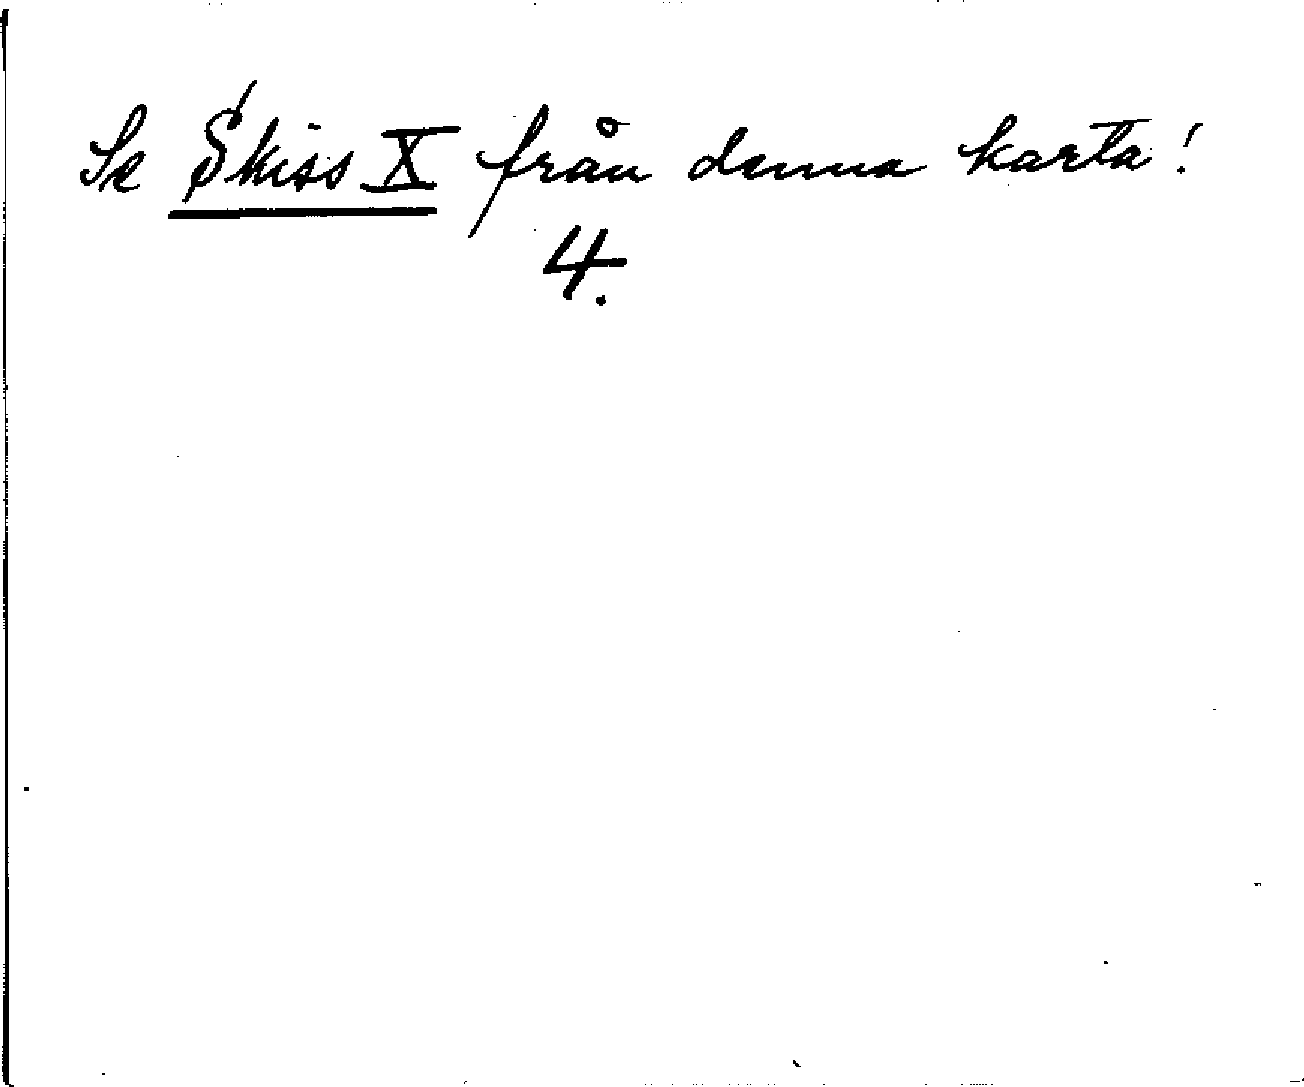 Se Skiss X från denna karta!
4.